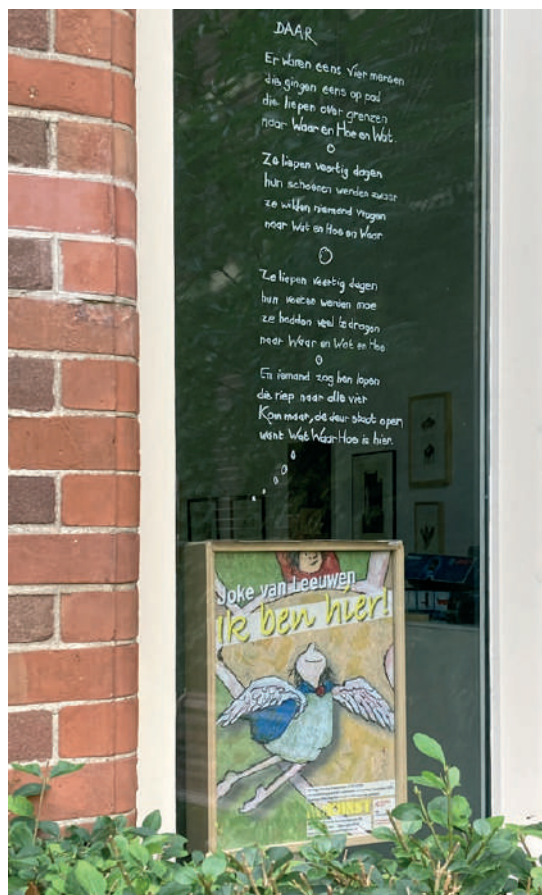 DAAR
Er waren eens vier mensen
die gingen eens op pad
die liepen over grenzen
naar Waar en Hoe en Wat.
Ze liepen veertig dagen
hun schoenen werden zwaar
ze wilden niemand vragen
naar Wat en Hoe en Waar
Ze liepen veertig dagen
hun voeten werden moe
ze hadden veel te dragen
naar Waar en Wat en Hoe
En iemand zag hen lopen
die riep naar alle vier
Kom maar, de deur staat open
want Wat Waar Hoe is hier.
Joke van Leeuwen
Ik ben hier!